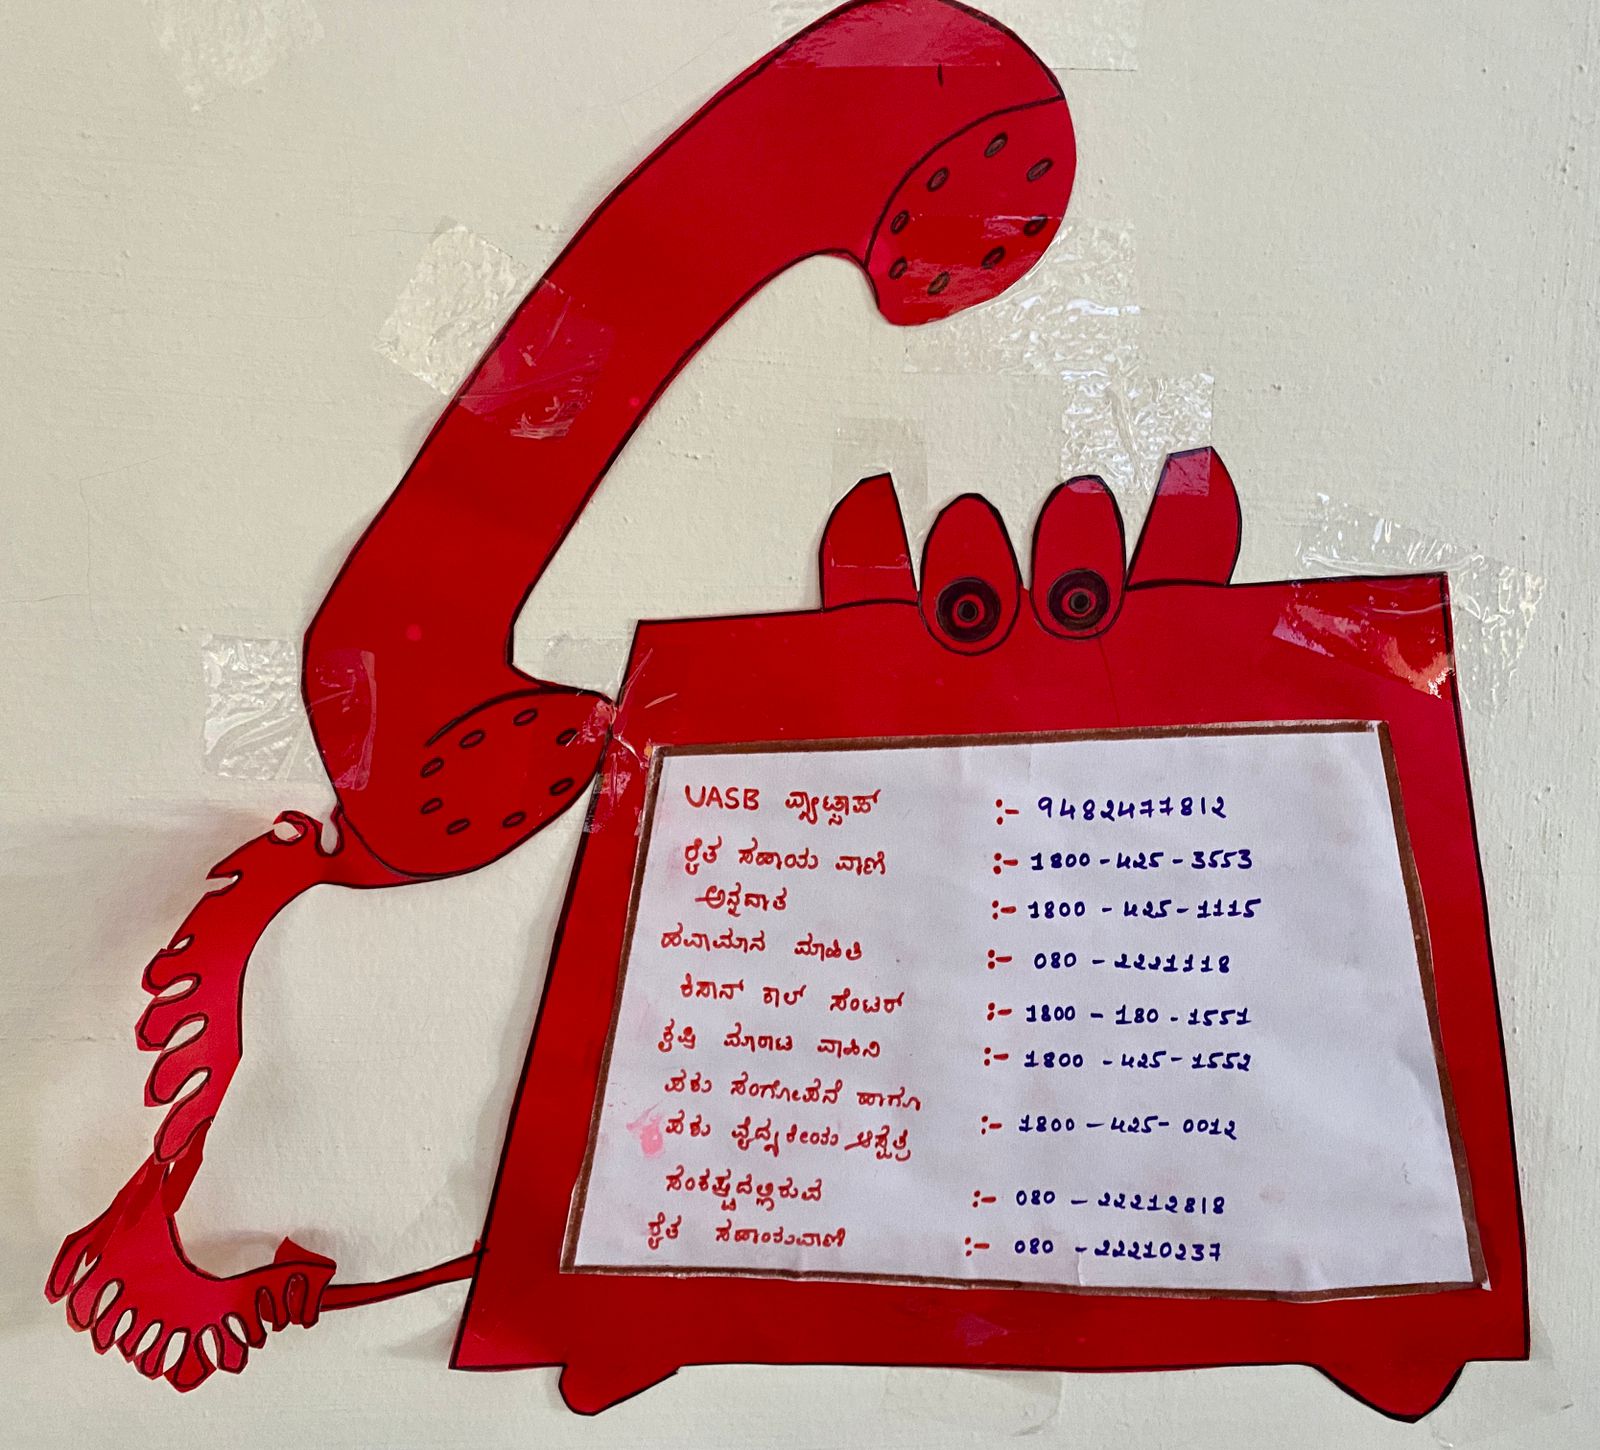 UASB ವ್ಯಾಟ್ಸಾಪ್ :- 9482477812
ರೈತ ಸಹಾಯ ವಾಣಿ :- 1800-425-3553
ಅನ್ನದಾತ :- 1800-425-1115
ಹವಾಮಾನ ಮಾಹಿತಿ :- 080-2221118
ಕಿಸಾನ್ ಕಾಲ್ ಸೆಂಟರ್ :- 1800-180-1551
ಕೃಷಿ ಮಾರಾಟ ವಾಹಿನಿ :- 1800-425-1552
ಪಶು ಸಂಗೋಪನೆ ಹಾಗೂ
ಪಶು ವೈದ್ಯಕೀಯ ಆಸ್ಪತ್ರೆ :- 1800-425-0012
ಸಂಕಷ್ಟದಲ್ಲಿರುವ :- 080-22212818
ರೈತ ಸಹಾಯವಾಣಿ :- 080-22210237